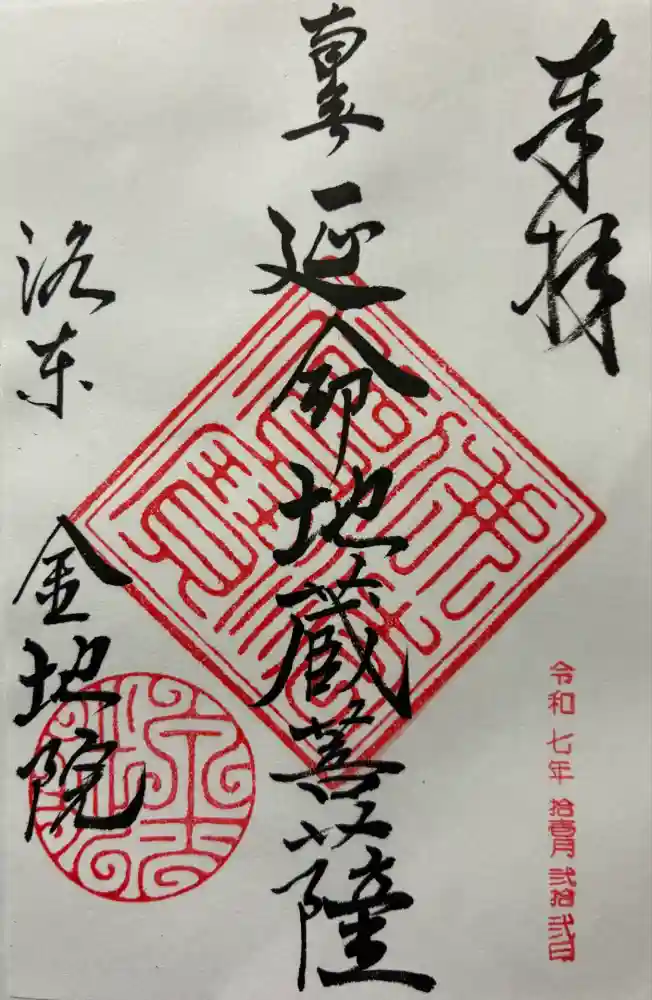 奉拝
令和七年拾壹月弐拾弐日
南無延命地蔵菩薩
洛东
金地院